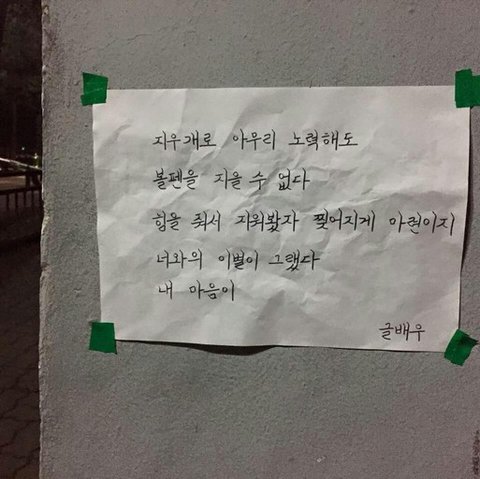 지우개로 아무리 노력해도
볼펜을 지울 수 없다
힘을 줘서 지워봤자 찢어지게 마련이지
너와의 이별이 그랬다
내 마음이
글배우